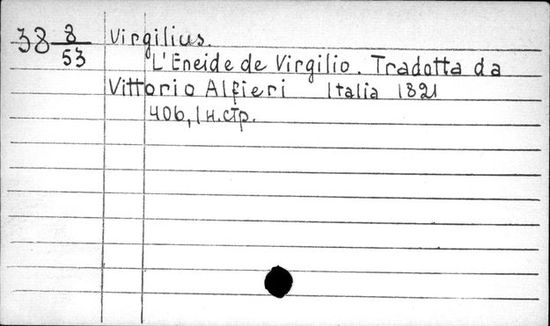 38 8/53 Virgilius.
L'Eneide de Virgilio. Tradotta da
Vittorio Alfieri Italia 1821
406, 1 н.стр.